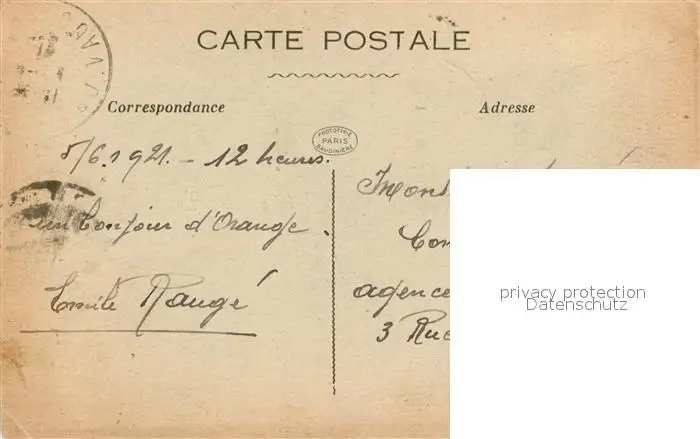 CARTE POSTALE
Correspondance
Adresse
PROTOTYPIE
PARIS
BAUDINIÈRE
5/6.1921. - 12 heures.
un bonjour d'Orange.
Emile Raugé
agence
3 Rue
privacy protection
Datenschutz